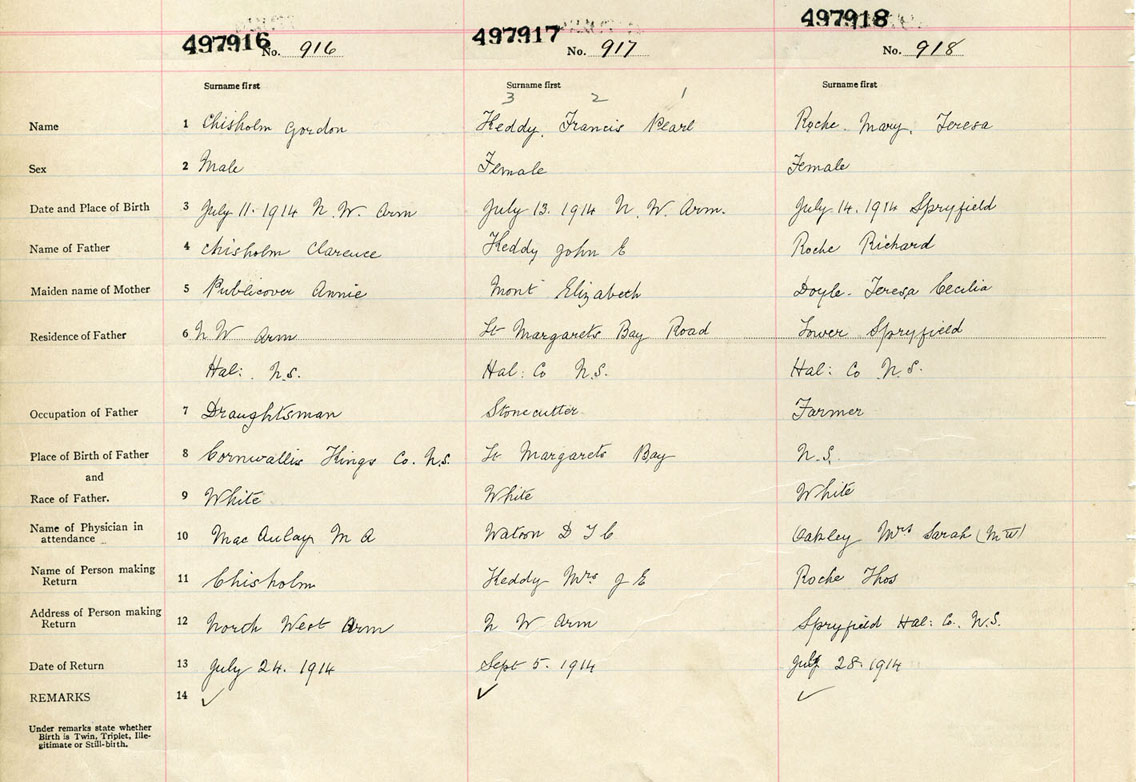 497916 497917 497918
No. 916 No. 917 No. 918
Surname first Surname first Surname first
3 2 1
Name 1 Chisholm Gordon Keddy, Francis Pearl Roche Mary, Teresa
Sex 2 Male Female Female
Date and Place of Birth 3 July 11. 1914 N. W. Arm July 13. 1914 N. W. Arm. July 14. 1914 Spryfield
Name of Father 4 Chisholm Clarence Keddy John E Roche Richard
Maiden name of Mother 5 Publicover Annie Mont Elizabeth Doyle - Teresa Cecilia
Residence of Father 6 N W Arm St Margarets Bay Road Lower Spryfield
Hal: N.S. Hal: Co N.S. Hal: Co N.S.
Occupation of Father 7 Draughtsman Stonecutter Farmer
Place of Birth of Father 8 Cornwallis Kings Co. N.S. St Margarets Bay N.S.
and
Race of Father. 9 White White White
Name of Physician in
attendance 10 Mac Aulay M A Watson D T C Oakley Mrs Sarah (MW)
Name of Person making
Return 11 Chisholm Keddy Mrs J E Roche Thos
Address of Person making
Return 12 North West Arm N W Arm Spryfield Hal: Co. N.S.
Date of Return 13 July 24. 1914 Sept 5. 1914 July 28. 1914
REMARKS 14 ✓ ✓ ✓
Under remarks state whether
Birth is Twin, Triplet, Ille-
gitimate or Still-birth.